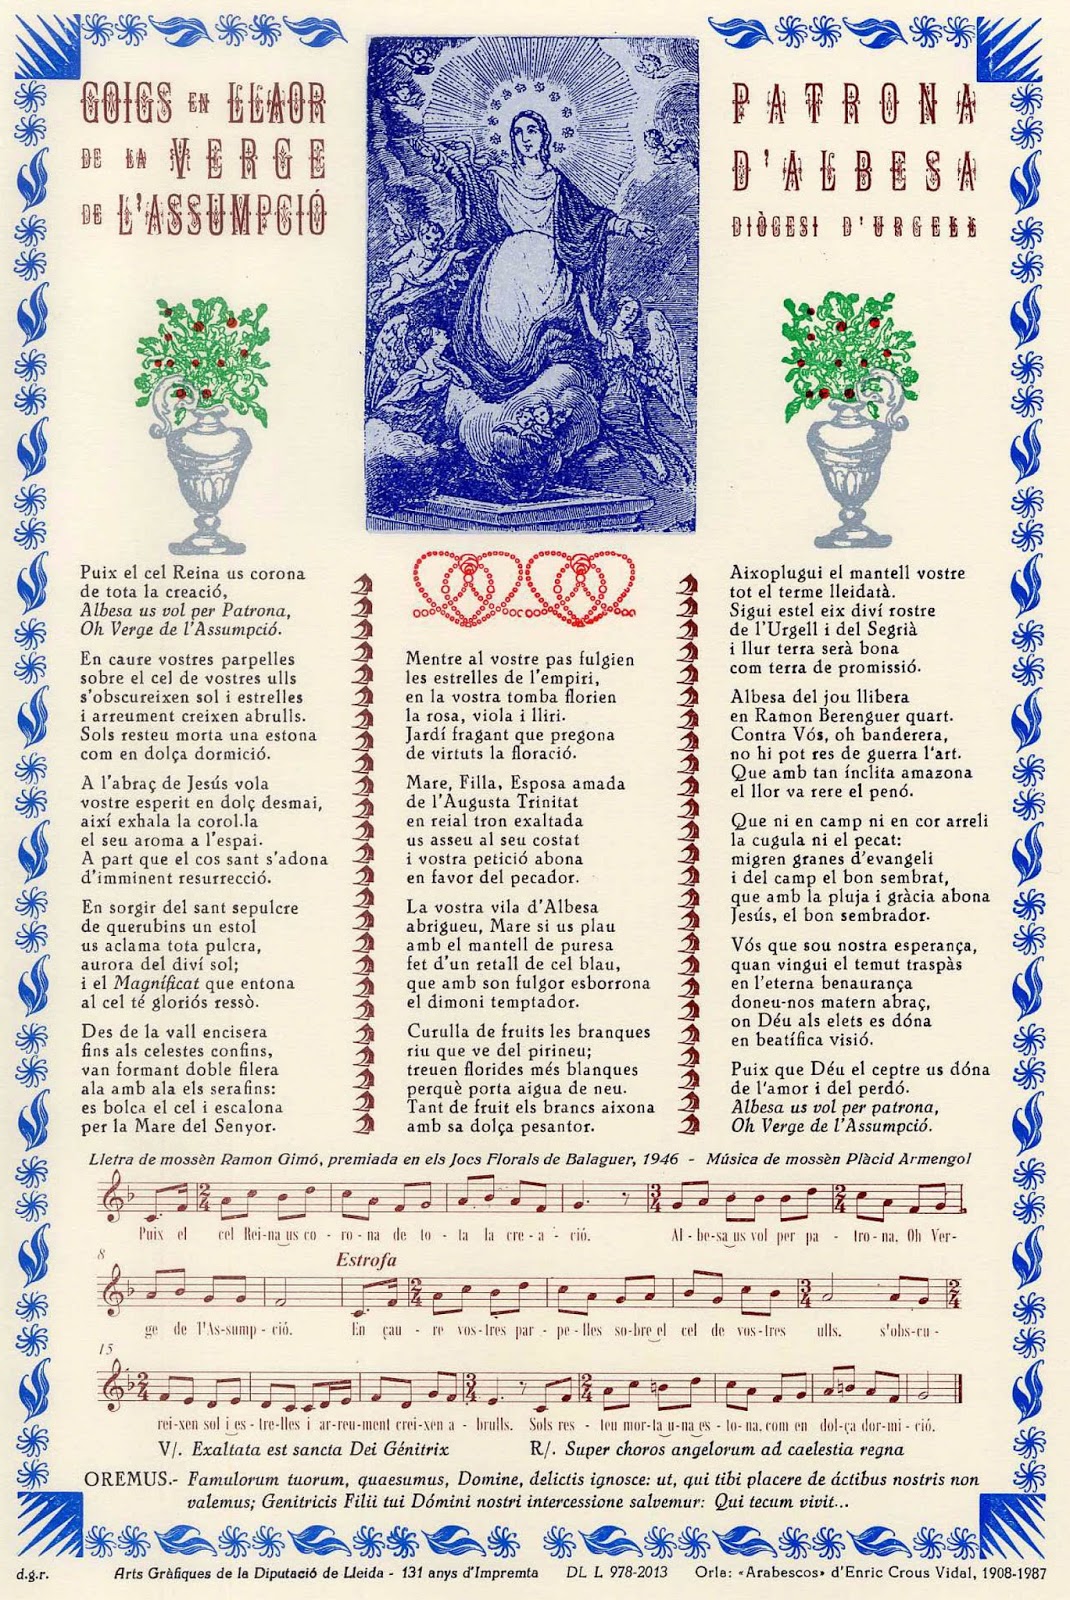 GOIGS EN LLAOR
DE LA VERGE
DE L'ASSUMPCIÓ
PATRONA
D'ALBESA
DIÒCESI D'URGELL
Puix el cel Reina us corona
de tota la creació,
Albesa us vol per Patrona,
Oh Verge de l'Assumpció.
En caure vostres parpelles
sobre el cel de vostres ulls
s'obscureixen sol i estrelles
i arreument creixen abrulls.
Sols resteu morta una estona
com en dolça dormició.
A l'abraç de Jesús vola
vostre esperit en dolç desmai,
així exhala la corol.la
el seu aroma a l'espai.
A part que el cos sant s'adona
d'imminent resurrecció.
En sorgir del sant sepulcre
de querubins un estol
us aclama tota pulcra,
aurora del diví sol;
i el Magníficat que entona
al cel té gloriós ressò.
Des de la vall encisera
fins als celestes confins,
van formant doble filera
ala amb ala els serafins:
es bolca el cel i escalona
per la Mare del Senyor.
Mentre al vostre pas fulgien
les estrelles de l'empiri,
en la vostra tomba florien
la rosa, viola i lliri.
Jardí fragant que pregona
de virtuts la floració.
Mare, Filla, Esposa amada
de l'Augusta Trinitat
en reial tron exaltada
us asseu al seu costat
i vostra petició abona
en favor del pecador.
La vostra vila d'Albesa
abrigueu, Mare si us plau
amb el mantell de puresa
fet d'un retall de cel blau,
que amb son fulgor esborrona
el dimoni temptador.
Curulla de fruits les branques
riu que ve del pirineu;
treuen florides més blanques
perquè porta aigua de neu.
Tant de fruit els brancs aixona
amb sa dolça pesantor.
Aixoplugui el mantell vostre
tot el terme lleidatà.
Sigui estel eix diví rostre
de l'Urgell i del Segrià
i llur terra serà bona
com terra de promissió.
Albesa del jou llibera
en Ramon Berenguer quart.
Contra Vós, oh banderera,
no hi pot res de guerra l'art.
Que amb tan ínclita amazona
el llor va rere el penó.
Que ni en camp ni en cor arreli
la cugula ni el pecat:
migren granes d'evangeli
i del camp el bon sembrat,
que amb la pluja i gràcia abona
Jesús, el bon sembrador.
Vós que sou nostra esperança,
quan vingui el temut traspàs
en l'eterna benaurança
doneu-nos matern abraç,
on Déu als elets es dóna
en beatífica visió.
Puix que Déu el ceptre us dóna
de l'amor i del perdó.
Albesa us vol per patrona,
Oh Verge de l'Assumpció.
Lletra de mossèn Ramon Gimó, premiada en els Jocs Florals de Balaguer, 1946 - Música de mossèn Plàcid Armengol
Puix el cel Rei-na us co - ro - na de to - ta la cre - a - ció. Al - be-sa us vol per pa - tro-na, Oh Ver-
8
Estrofa
ge de l'As-sump - ció. En çau - re vos-tres par - pe-lles so-bre el cel de vos-tres ulls. s'obs-cu-
15
rei-xen sol i es-tre-lles i ar-reu-ment crei-xen a - brulls. Sols res - teu mor-ta u-na es - to-na, com en dol-ça dor-mi - ció.
V/. Exaltata est sancta Dei Génitrix
R/. Super choros angelorum ad caelestia regna
OREMUS.- Famulorum tuorum, quaesumus, Domine, delictis ignosce: ut, qui tibi placere de áctibus nostris non
valemus; Genitricis Filii tui Dómini nostri intercessione salvemur: Qui tecum vivit...
d.g.r.
Arts Gràfiques de la Diputació de Lleida - 131 anys d'Impremta
DL L 978-2013
Orla: «Arabescos» d'Enric Crous Vidal, 1908-1987